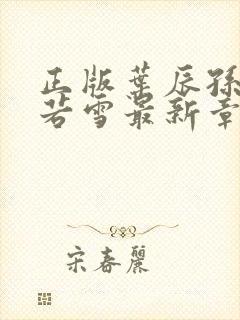 正版叶辰孙
若雪最新章
宋春丽